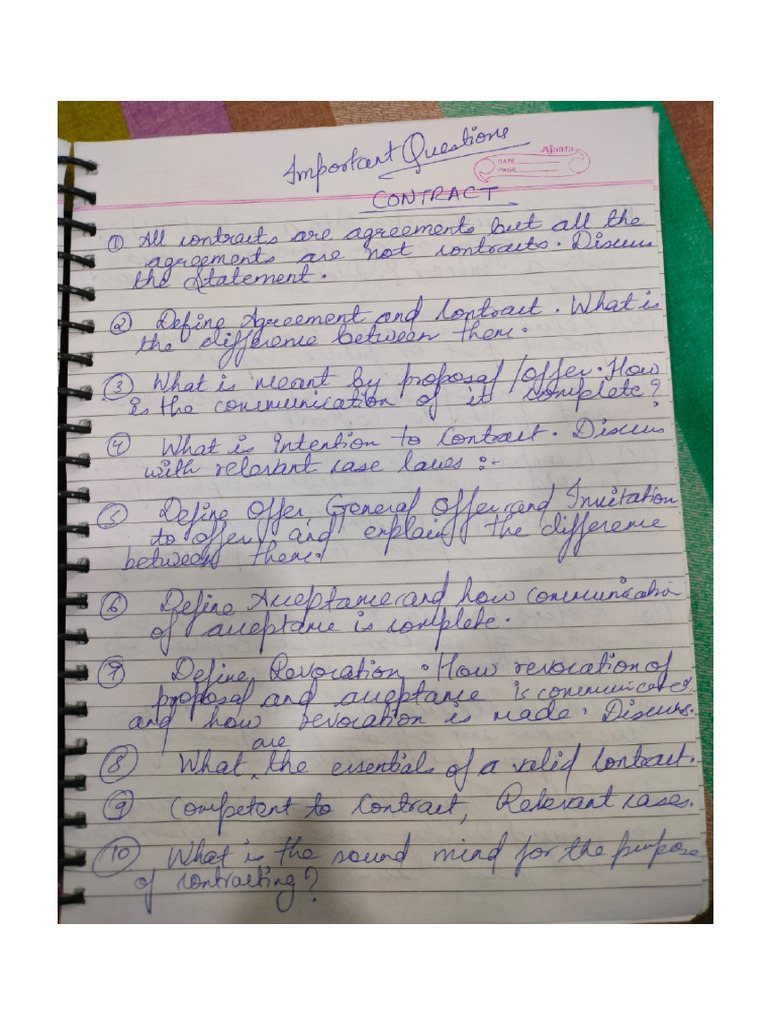 Important Questions
Ajanta
DATE
PAGE
CONTRACT
① All contracts are agreements but all the
agreements are not contracts. Discuss
the Statement.
② Define Agreement and Contract. What is
the difference between them.
③ What is meant by proposal/offer. How
is the communication of it complete?
④ What is Intention to Contract. Discuss
with relevant case laws :-
⑤ Define Offer, General Offer and Invitation
to offer and explain the difference
between them.
⑥ Define Acceptance and how communication
of acceptance is complete.
⑦ Define Revocation. How revocation of
proposal and acceptance is communicated
and how revocation is made. Discuss.
⑧ What are the essentials of a valid Contract.
⑨ Competent to Contract, Relevant cases.
⑩ What is the sound mind for the purpose
of contracting?